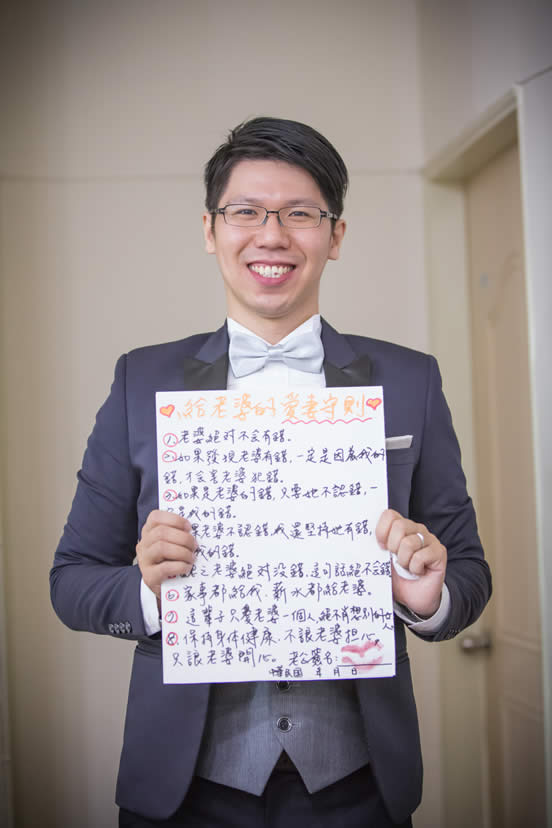 給老婆的愛妻守則
1.老婆絕對不會有錯.
2.如果發現老婆有錯,一定是因為我的
錯,才會害老婆犯錯.
3.如果是老婆的錯,只要她不認錯,一
是我的錯.
果老婆不認錯,我還堅持她有錯,
我的錯.
之老婆絕對没錯,這句話絕不會錯
6.家事都給我.薪水都給老婆.
7.這輩子只愛老婆一個人,絕不肖想別的女人
8.保持身体健康.不讓老婆担心.
只讓老婆開心. 老公簽名:
中華民國 年 月 日